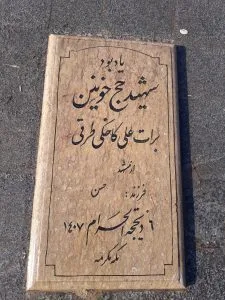 یادبود
شهید حج خونین
برات علی کاخکی طرقی
از مشهد
فرزند: حسن
۶ ذیحجه الحرام ۱۴۰۷
مکه مکرمه